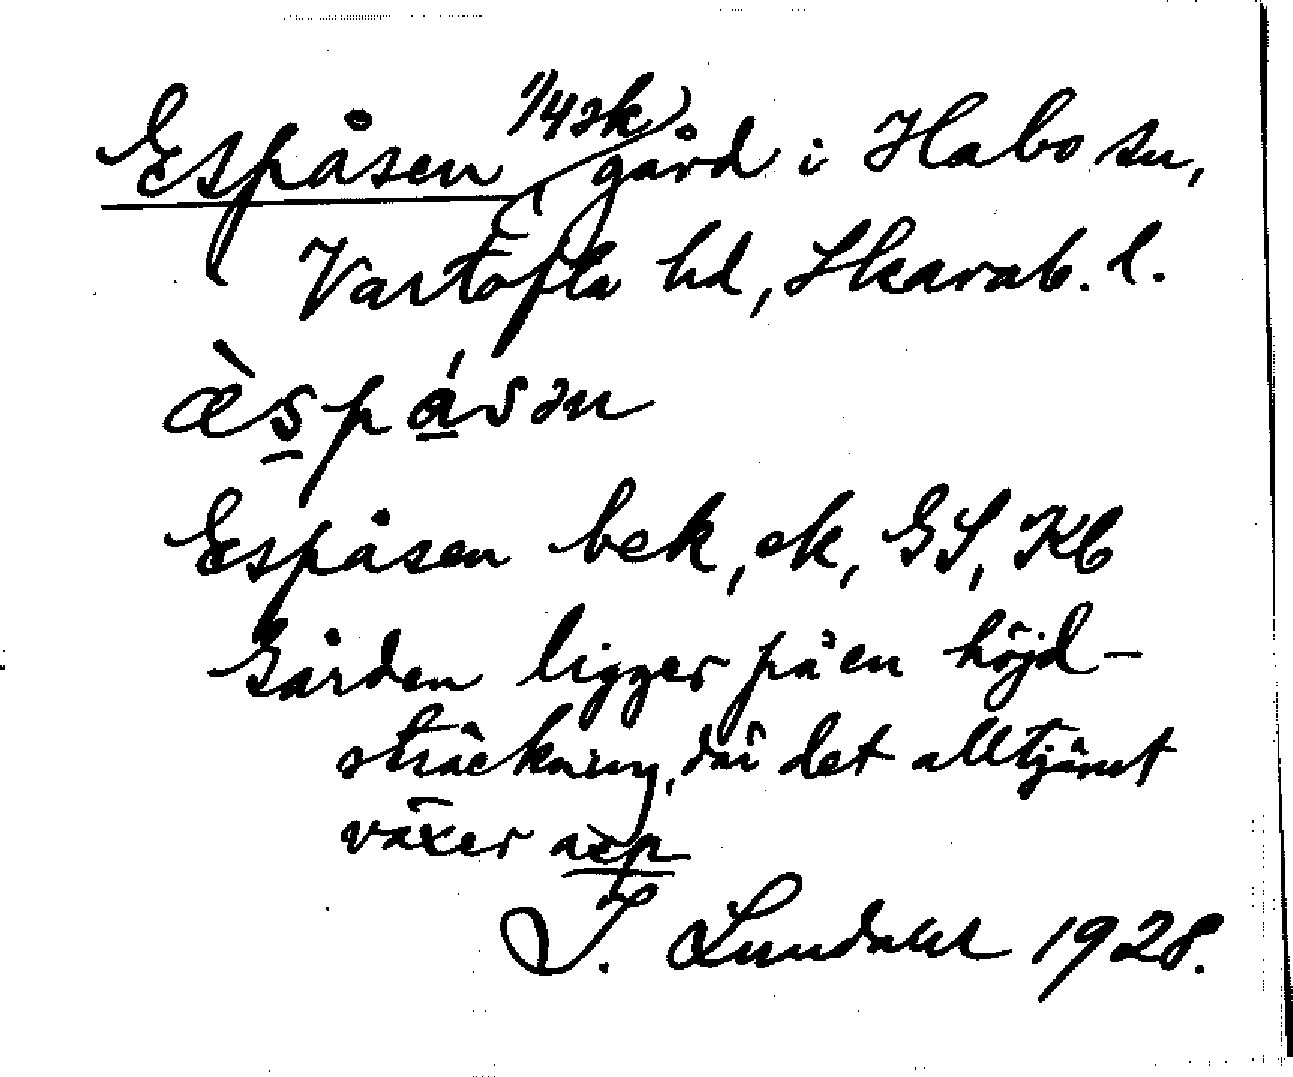 Espåsen (1/4 sk) gård i Habo sn,
Vartofta hd, Skarab. l.
æ̀spásən
Espåsen bek, ek, GS, Kb
Gården ligger på en höjd-
sträckning, där det alltjämt
växer asp
I. Lundahl 1928.